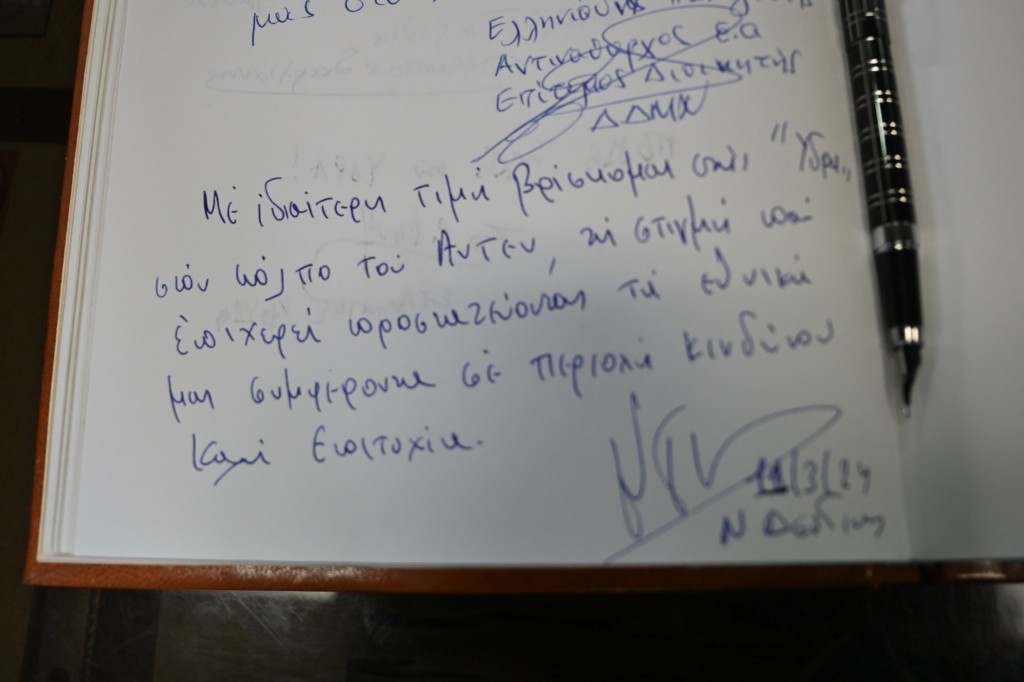 μας
Ελληνιδης
Αντιναύαρχος ε.α
Επίτιμος Διοικητής
ΔΔΜΧ
Με ιδιαίτερη τιμή βρίσκομαι στην "Ύδρα"
στον κόλπο του Αντεν, τη στιγμή που
επιχειρεί προστατεύοντας τα εθνικά
μας συμφέροντα σε περιοχή κινδύνου
Καλή Επιτυχία.
11/3/24
Ν Δένδιας